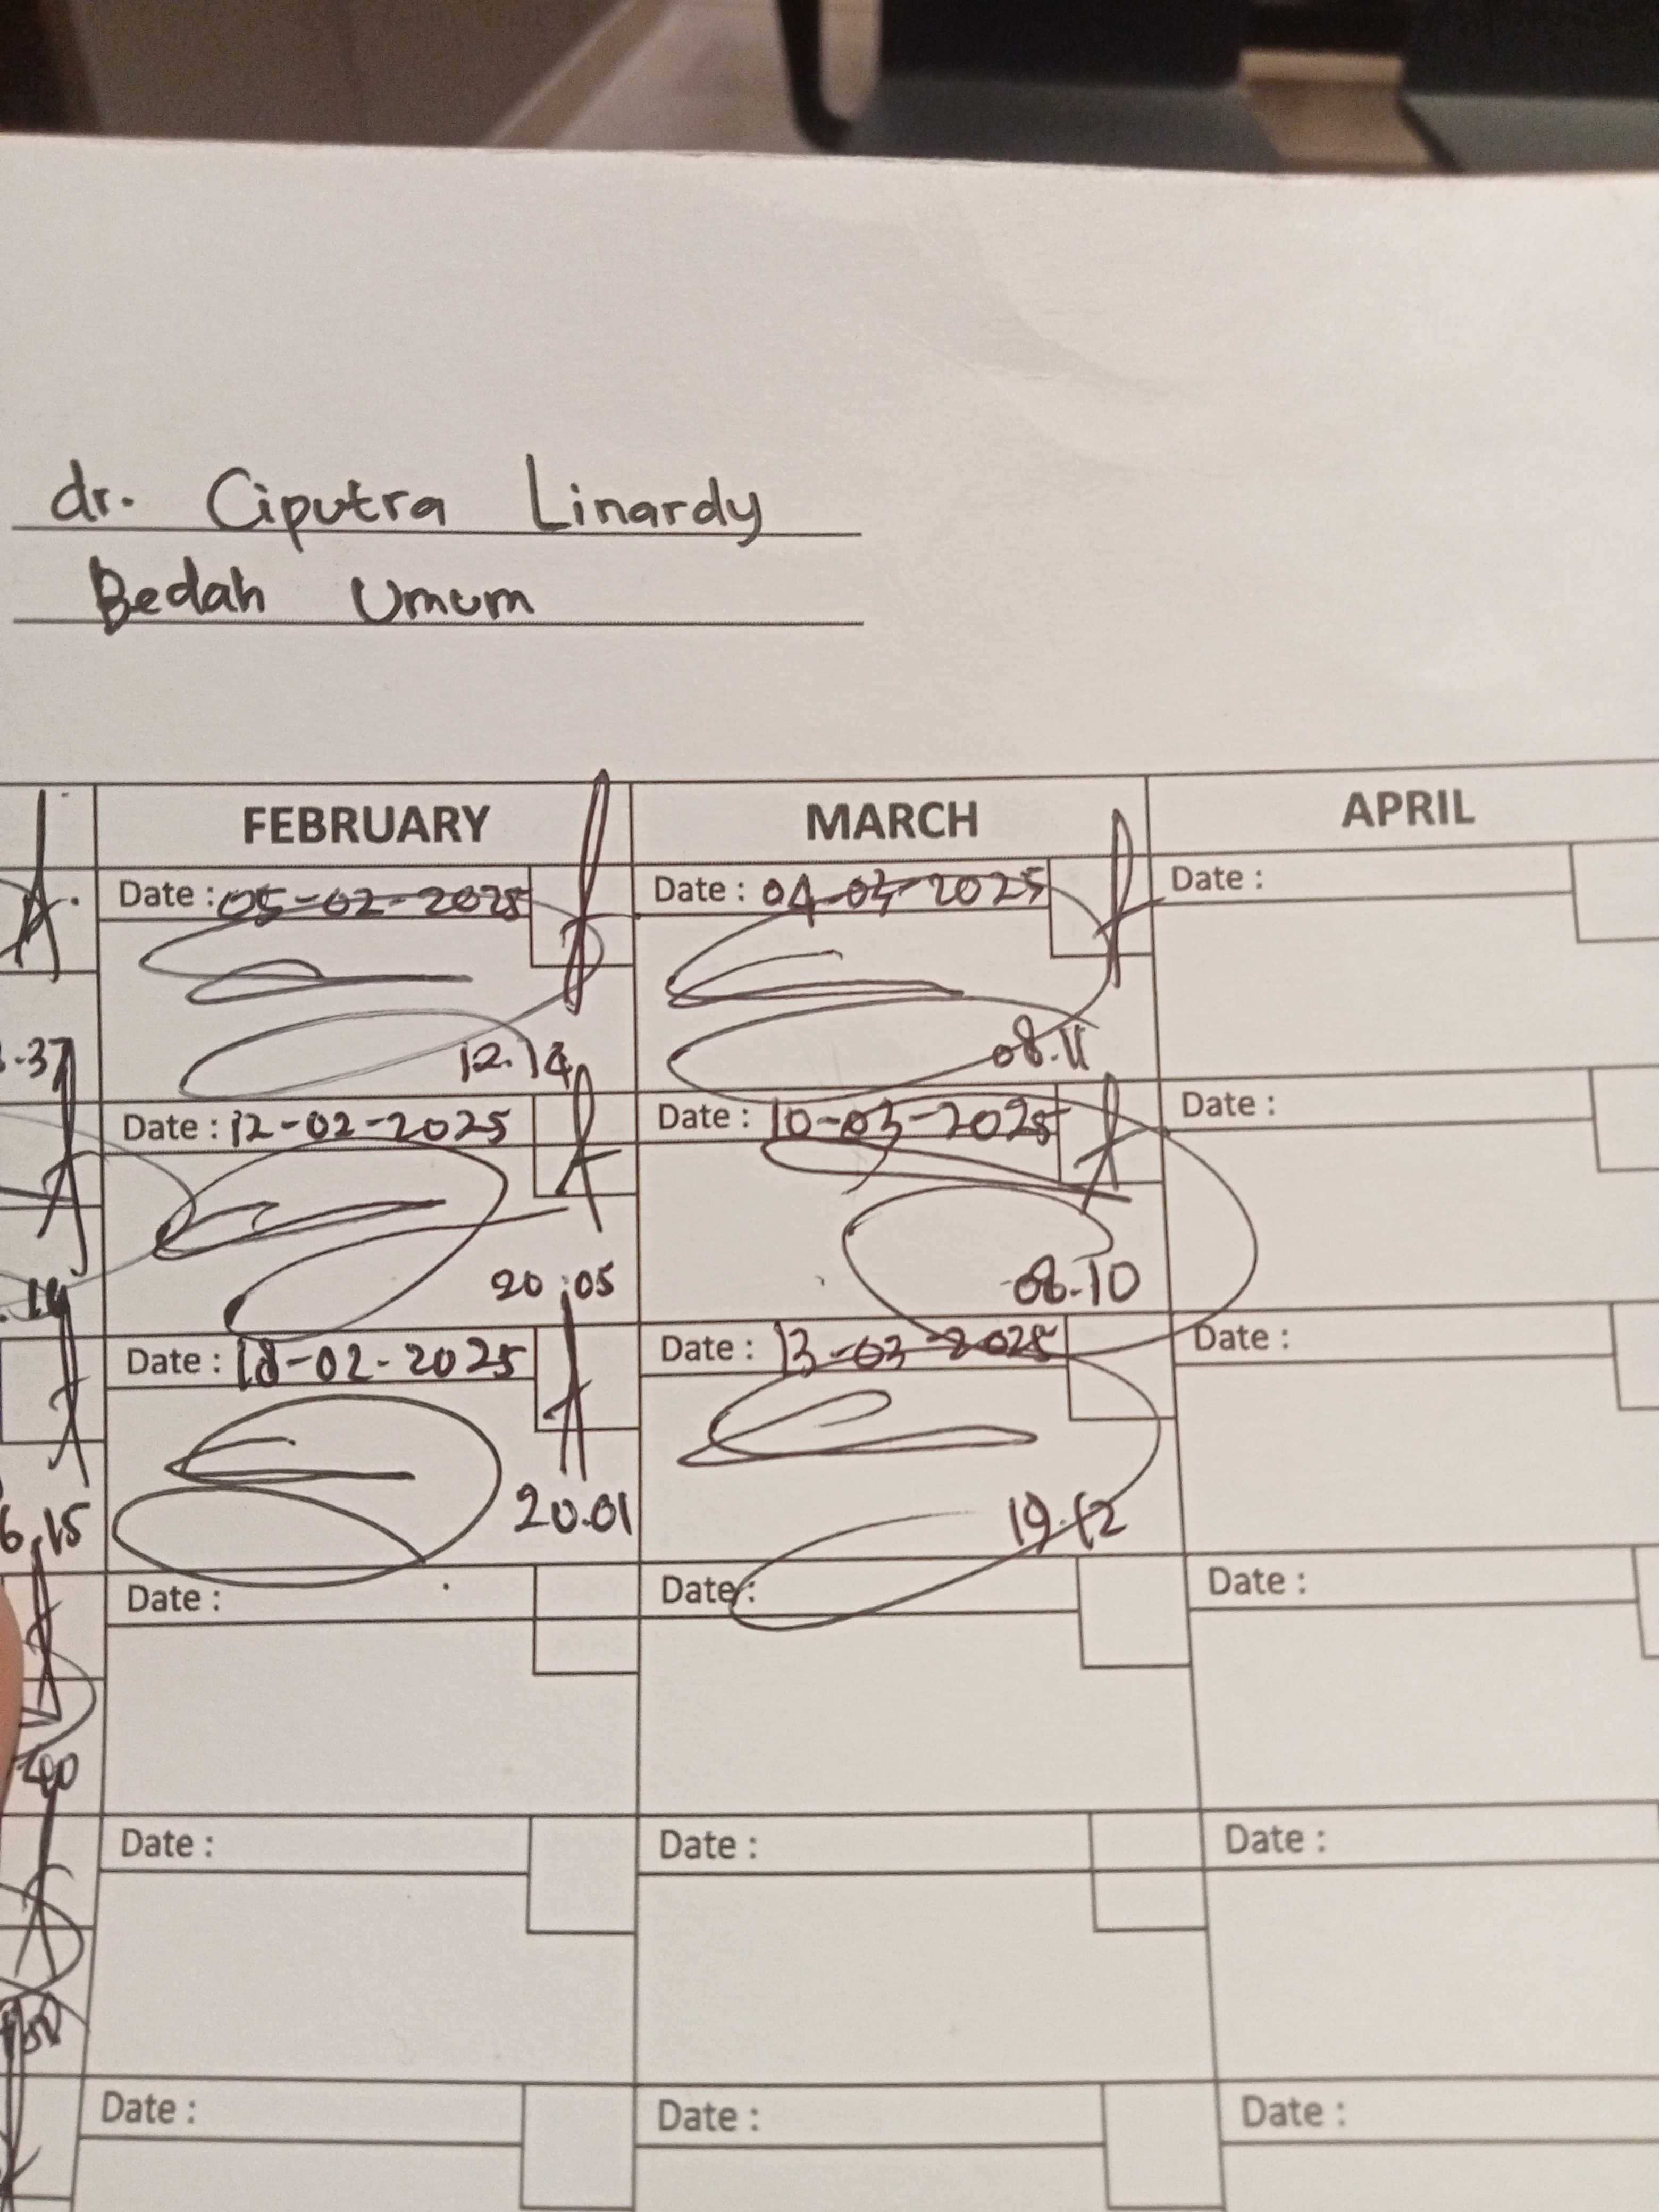 dr. Ciputra Linardy
Bedah Umum
FEBRUARY MARCH APRIL
Date : 05-02-2025 Date : 04-03-2025 Date :
12.14 08.11
Date : 12-02-2025 Date : 10-03-2025 Date :
20.05 08.10
Date : 18-02-2025 Date : 13-03-2025 Date :
20.01 19.12
Date : Date : Date :
Date : Date : Date :
Date : Date : Date :